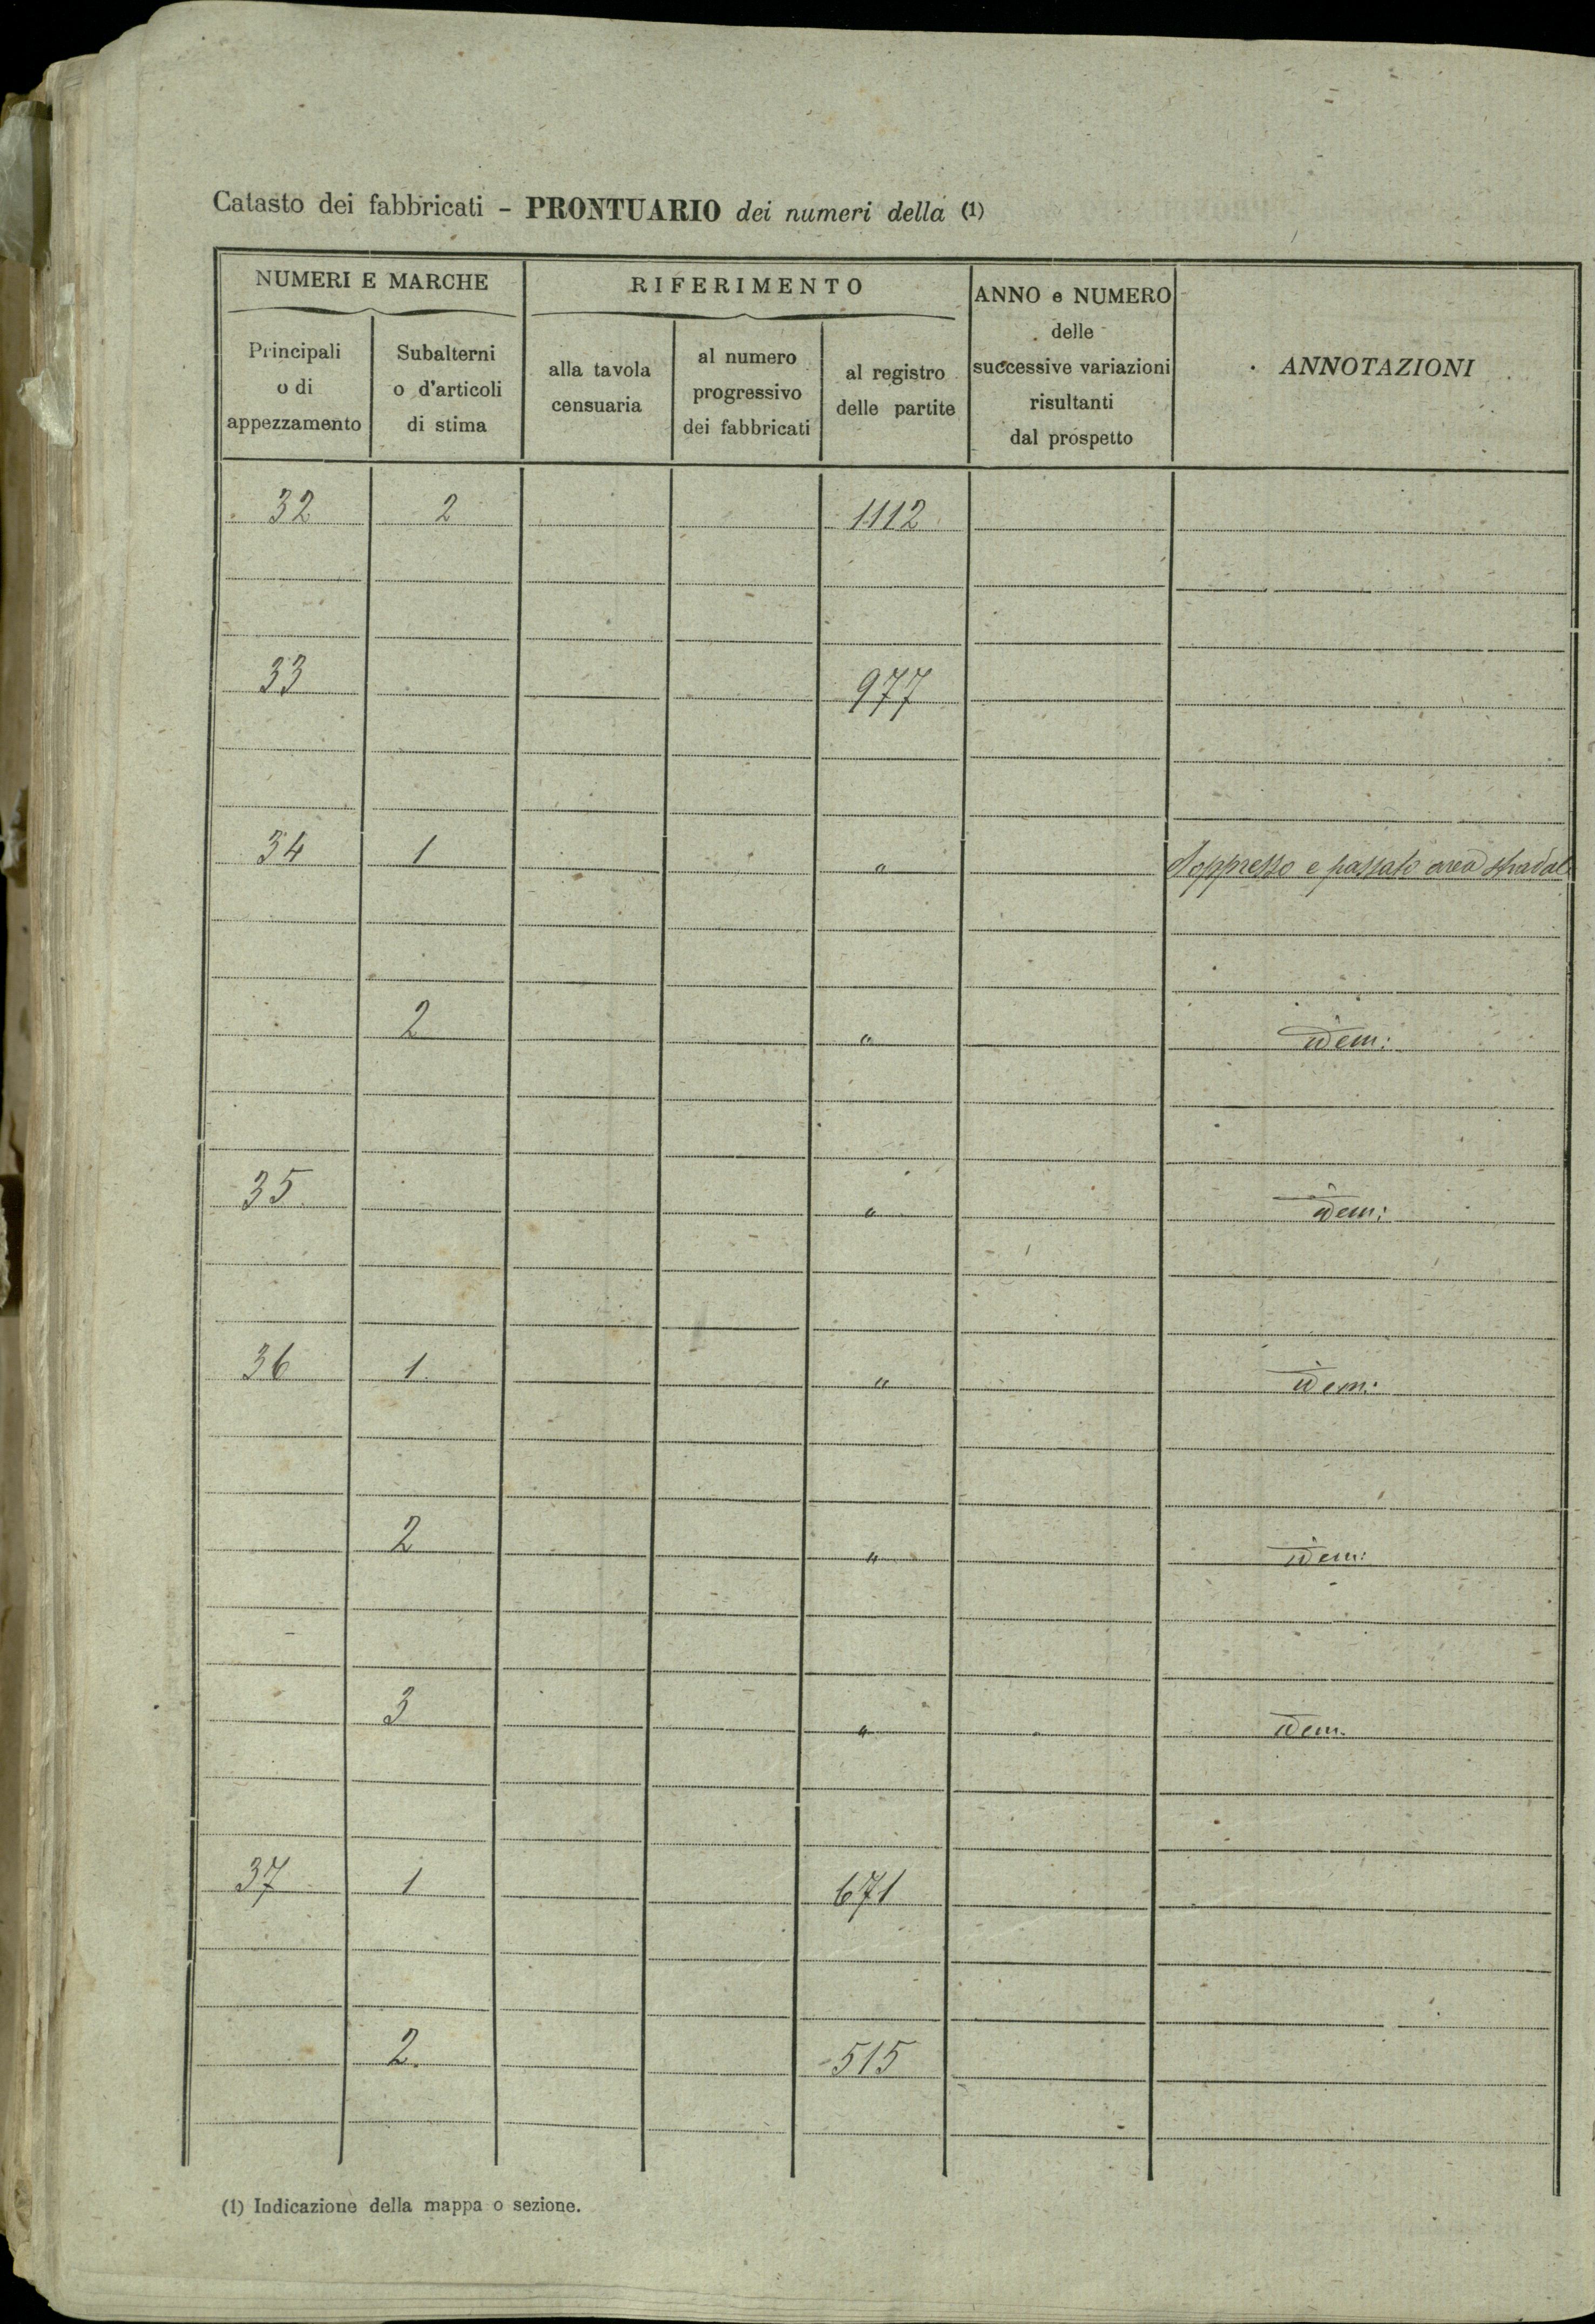 Catasto dei fabbricati - PRONTUARIO dei numeri della (1)
NUMERI E MARCHE
RIFERIMENTO
ANNO e NUMERO delle successive variazioni risultanti dal prospetto
ANNOTAZIONI
Principali o di appezzamento
Subalterni o d'articoli di stima
alla tavola censuaria
al numero progressivo dei fabbricati
al registro delle partite
32 2 1112
33 977
34 1 " Soppresso e passato area stradale
2 " idem:
35 " idem:
36 1 " idem:
2 " idem:
3 " idem.
37 1 671
2. 515
(1) Indicazione della mappa o sezione.